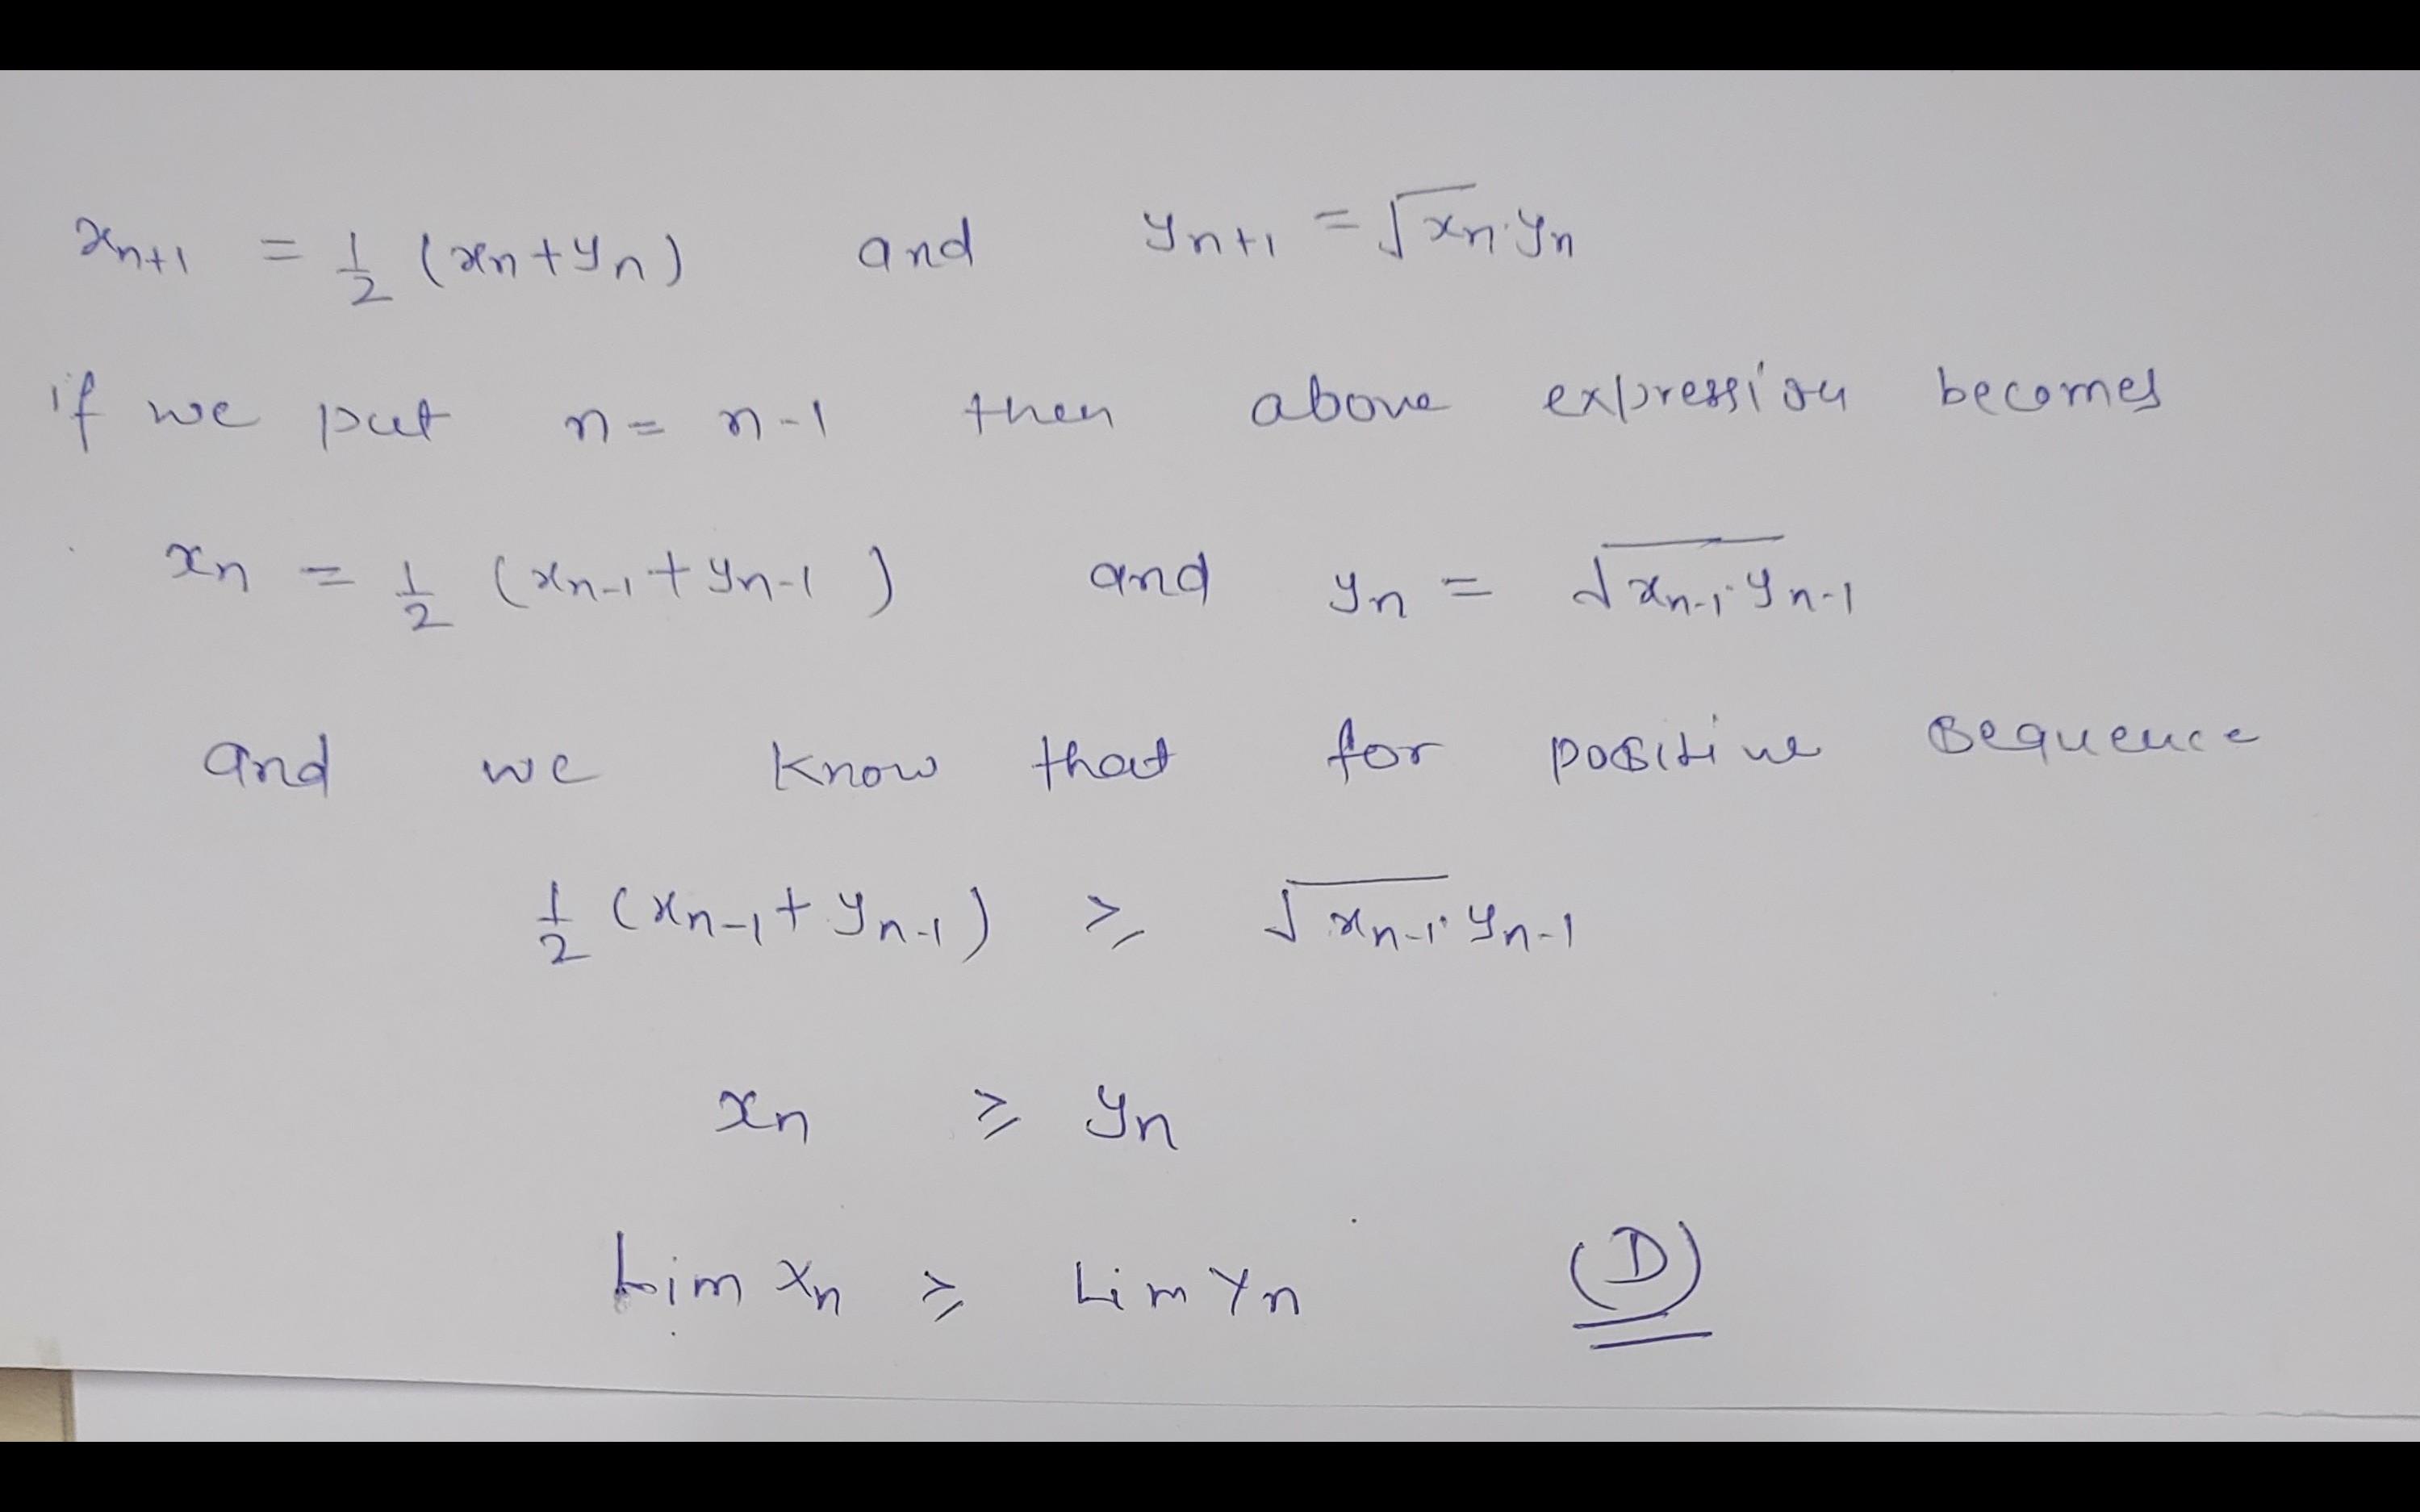 xₙ₊₁ = 1/2 (xₙ+yₙ) and yₙ₊₁ = √xₙ·yₙ
if we put n = n-1 then above expression becomes
xₙ = 1/2 (xₙ₋₁+yₙ₋₁) and yₙ = √xₙ₋₁·yₙ₋₁
and we know that for positive sequence
1/2 (xₙ₋₁+yₙ₋₁) ≥ √xₙ₋₁·yₙ₋₁
xₙ ≥ yₙ
Lim xₙ ≥ Lim yₙ (D)